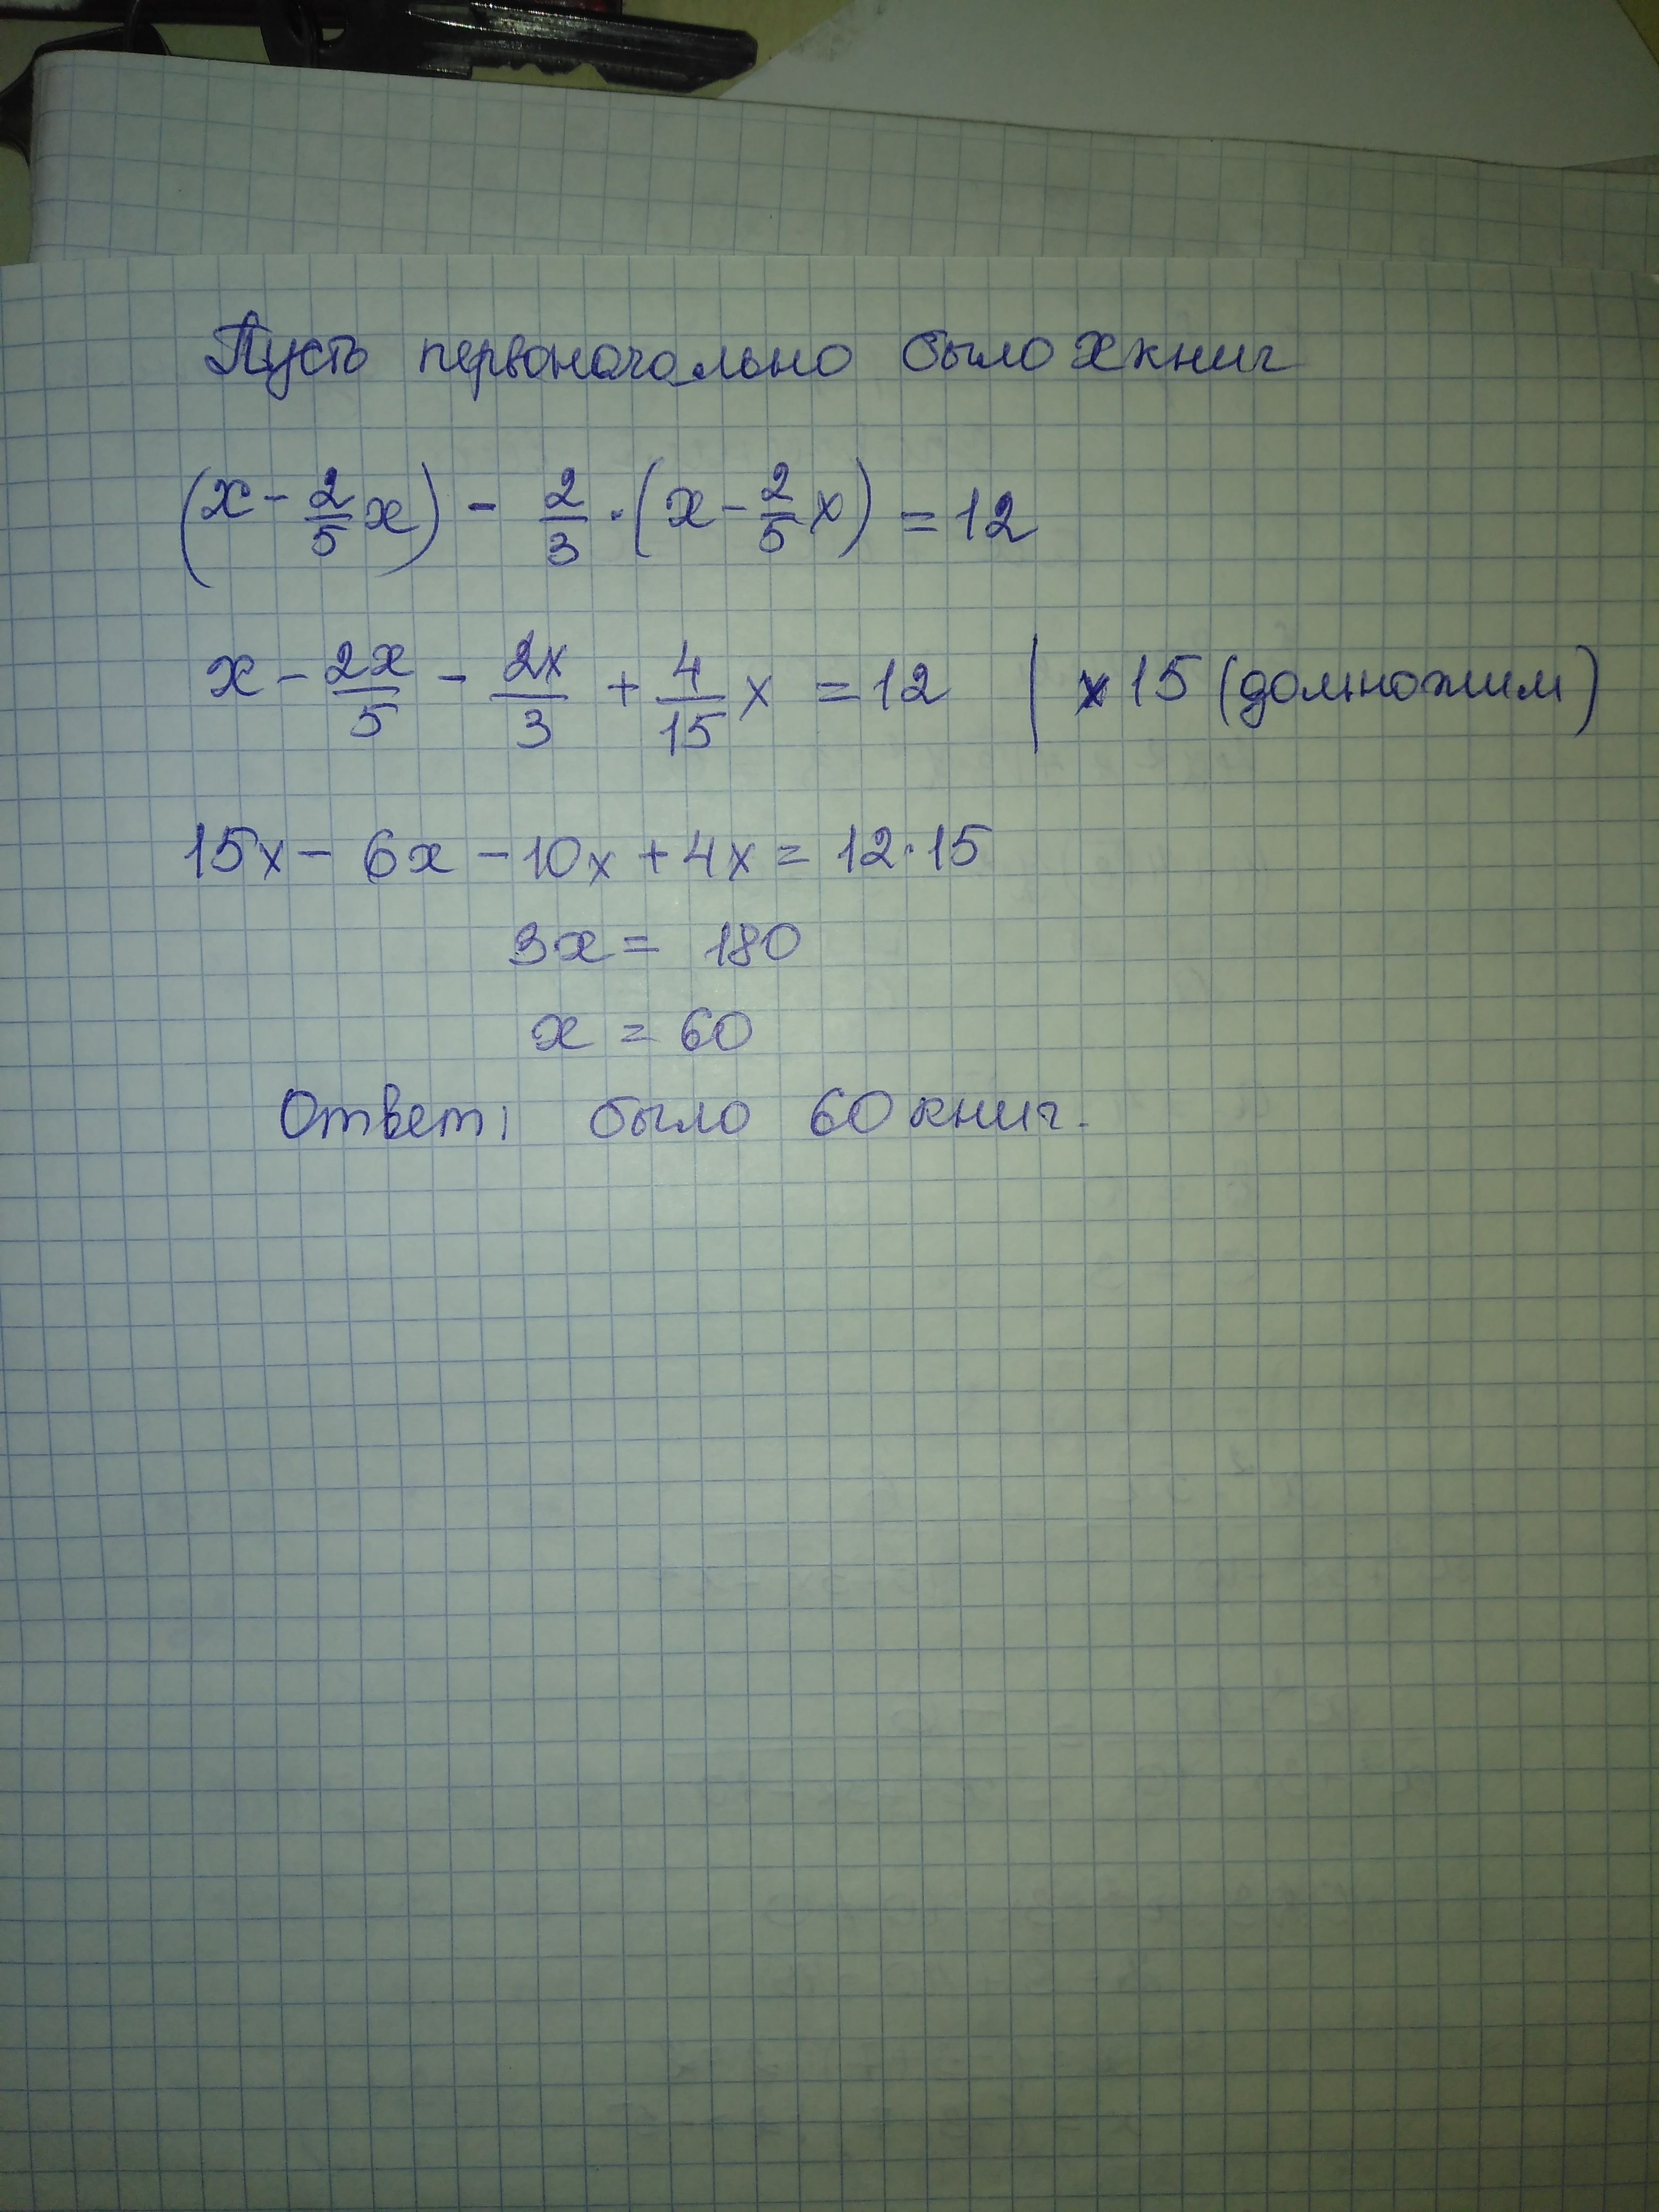 Пусть первоначально было x книг
(x - 2/5 x) - 2/3 · (x - 2/5 x) = 12
x - 2x/5 - 2x/3 + 4/15 x = 12 | x 15 (домножим)
15x - 6x - 10x + 4x = 12·15
3x = 180
x = 60
Ответ: было 60 книг.